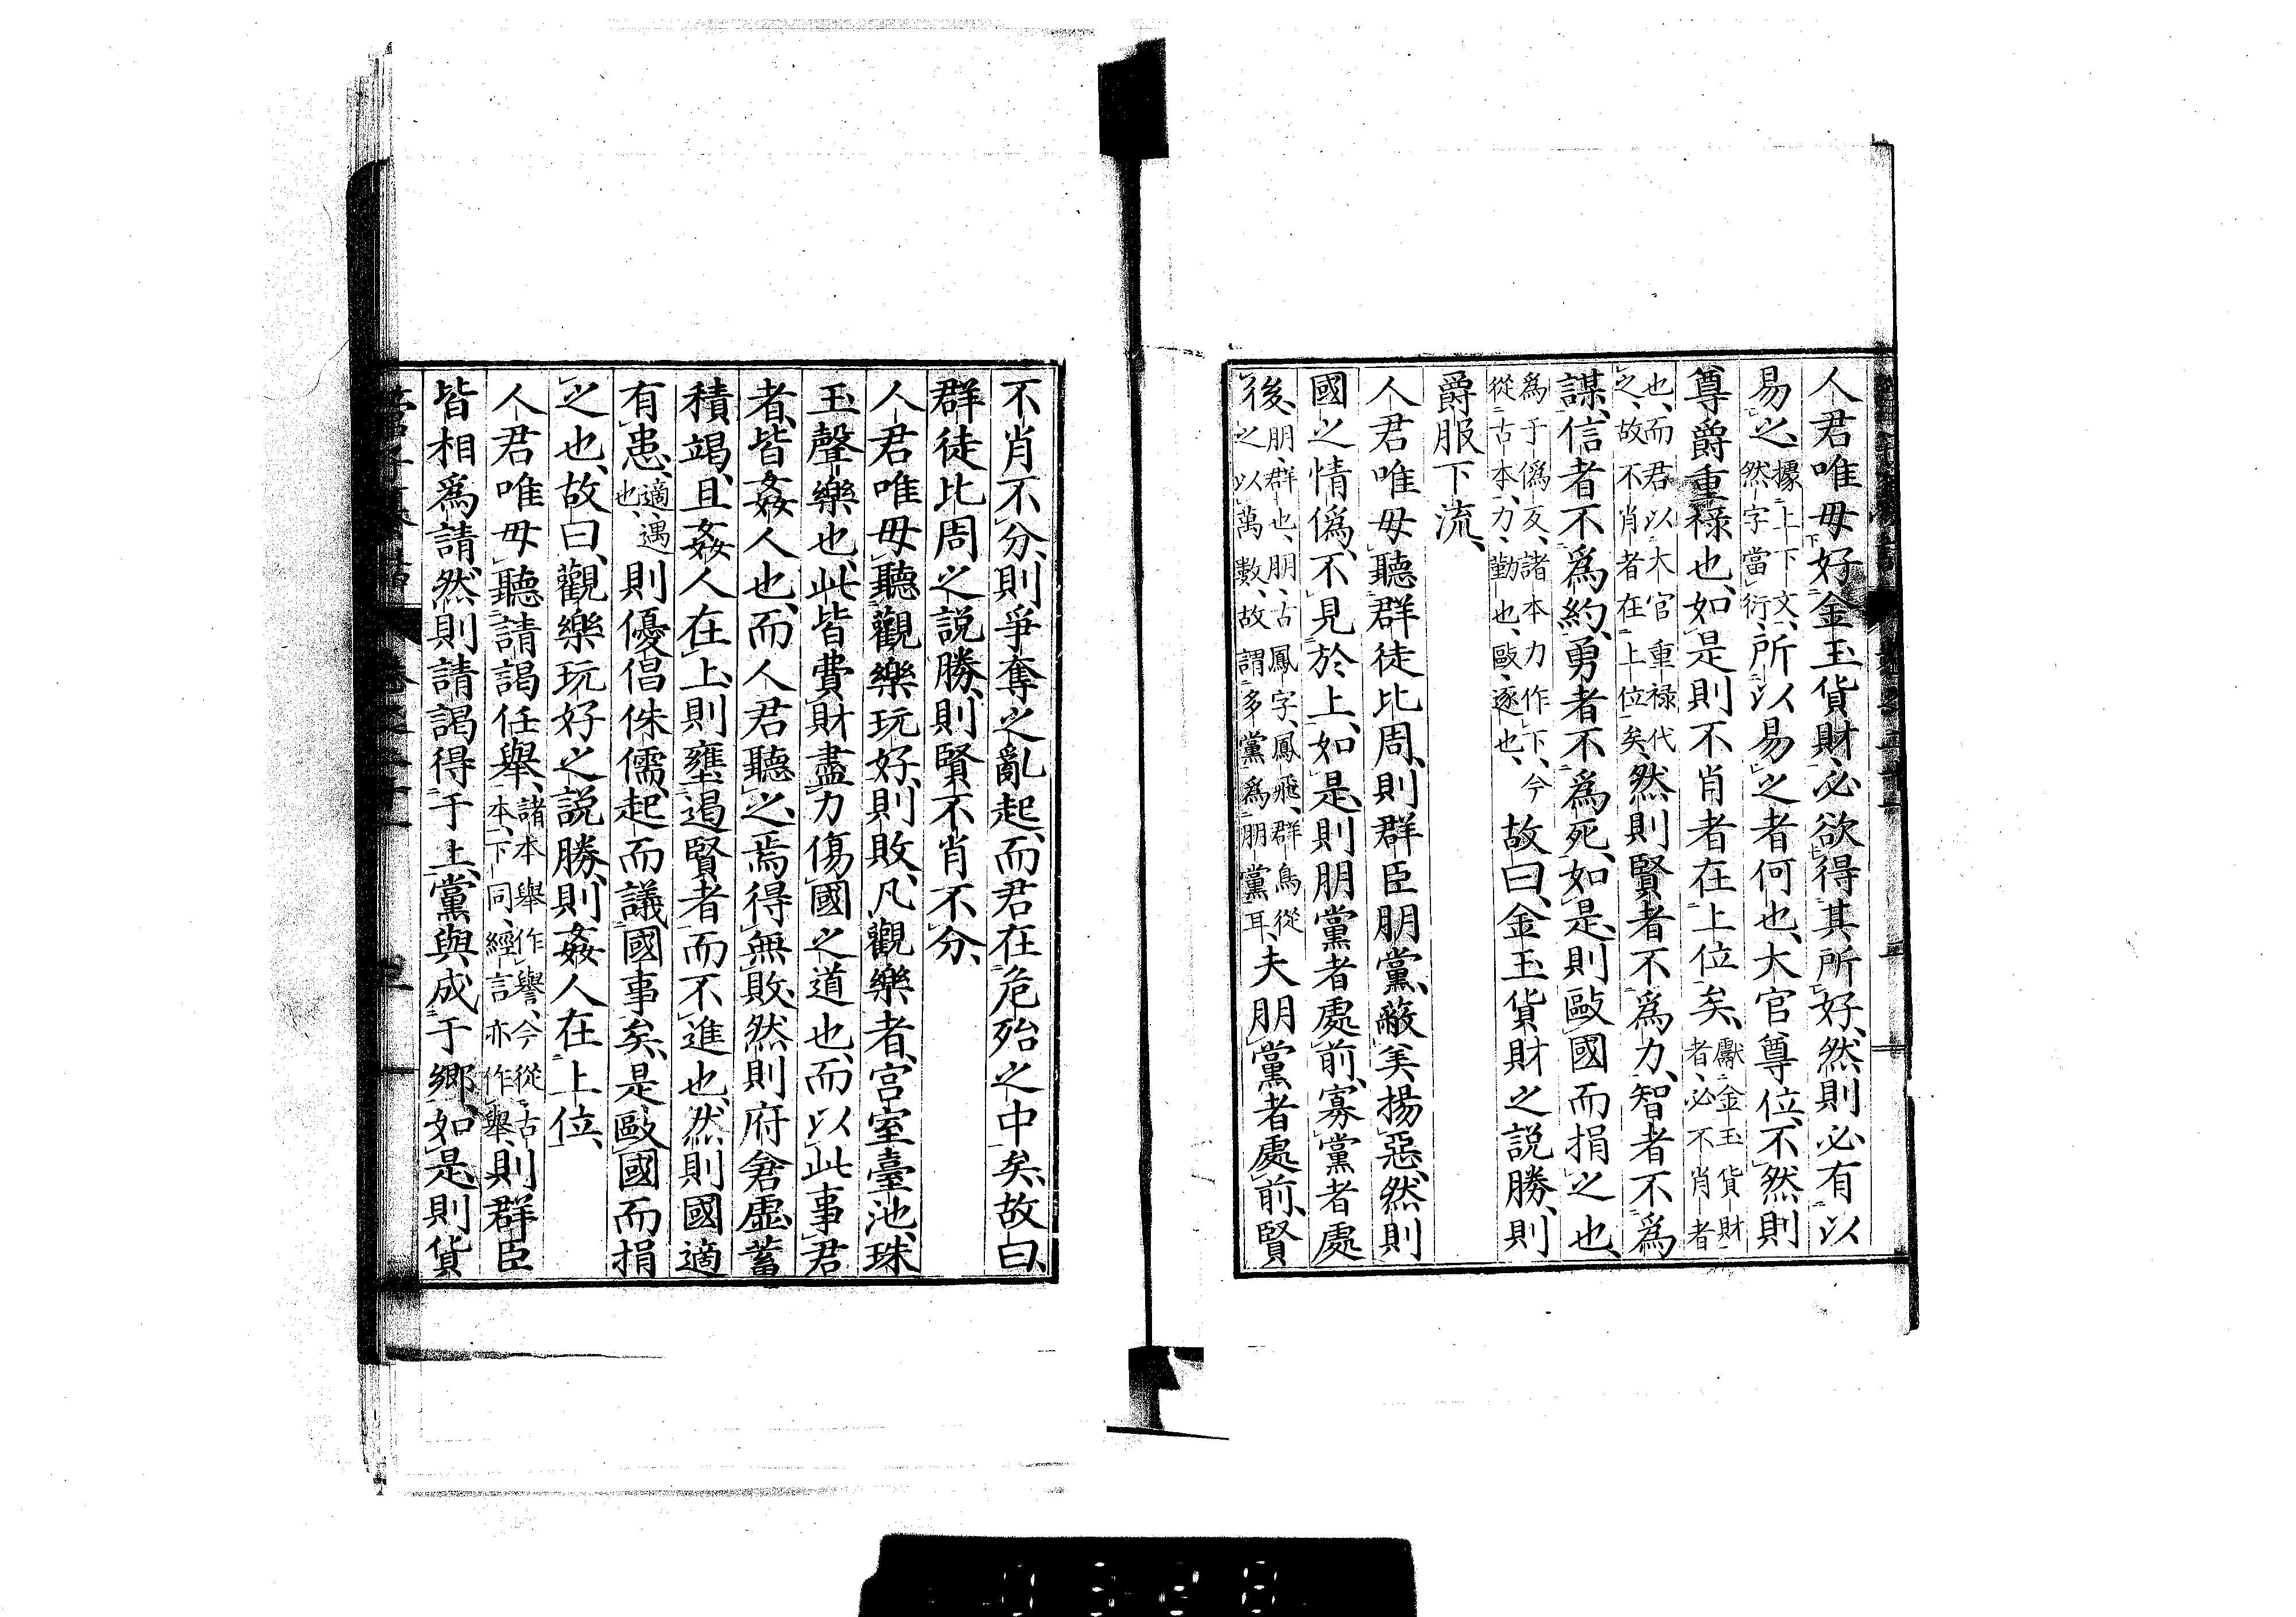 人君唯毋好金玉貨財、必欲得其所好、然則必有以
易之、據上下文、然字當衍、所以易之者何也、大官尊位、不然則
尊爵重禄也、如是則不肖者在上位矣、獻金玉貨財者、必不肖者
也、而君以大官重禄代之、故不肖者在上位矣、然則賢者不為力、智者不為
謀、信者不為約、勇者不為死、如是則敺國而捐之也、
為于僞反、諸本力作下、今從古本、力、勤也、敺、逐也、故曰、金玉貨財之説勝、則
爵服下流、
人君唯毋聽群徒比周、則群臣朋黨、蔽美揚惡、然則
國之情僞、不見於上、如是、則朋黨者處前、寡黨者處
後、朋、群也、朋、古鳳字、鳳飛、群鳥從之以萬數、故謂多黨為朋黨耳、夫朋黨者處前、賢
不肖不分、則爭奪之亂起、而君在危殆之中矣、故曰、
群徒比周之説勝、則賢不肖不分、
人君唯毋聽觀樂玩好、則敗、凡觀樂者、宮室臺池、珠
玉聲樂也、此皆費財盡力傷國之道也、而以此事君
者、皆姦人也、而人君聽之、焉得無敗、然則府倉虛、蓄
積竭、且姦人在上、則壅遏賢者而不進也、然則國適
有患、適、遇也、則優倡侏儒、起而議國事矣、是敺國而捐
之也、故曰、觀樂玩好之説勝、則姦人在上位、
人君唯毋聽請謁任舉、諸本舉作譽、今從古本、下同、經言亦作舉、則群臣
皆相為請、然則請謁得于上、黨與成于鄉、如是、則貨